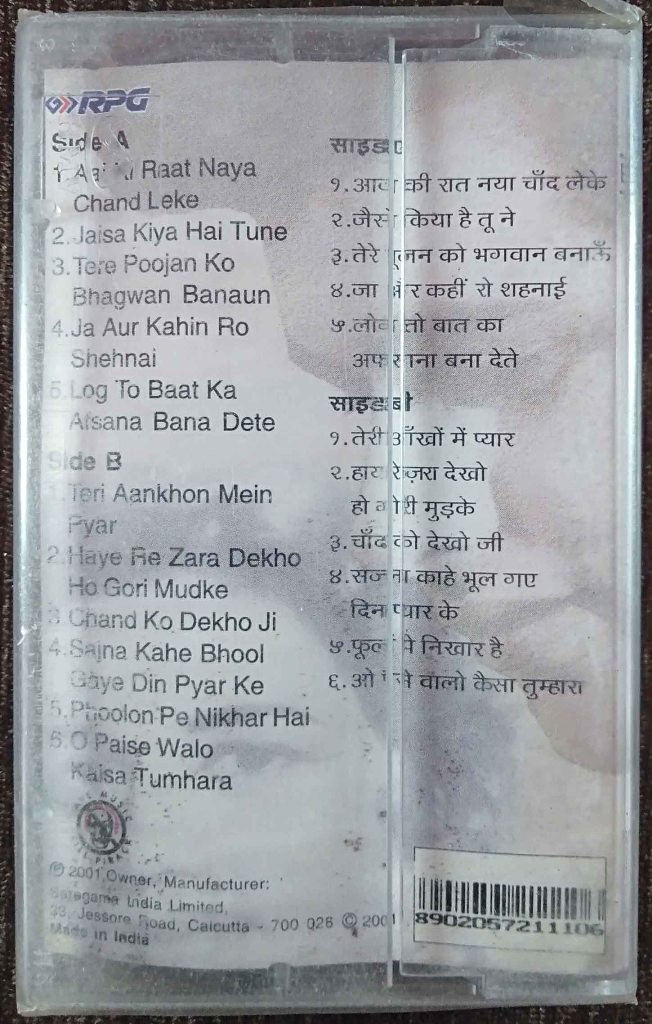 RPG
Side A
1. Raat Naya
Chand Leke
2.Jaisa Kiya Hai Tune
3.Tere Poojan Ko
Bhagwan Banaun
4.Ja Aur Kahin Ro
Shehnai
5.Log To Baat Ka
Afsana Bana Dete
Side B
1.Teri Aankhon Mein
Pyar
2.Haye Re Zara Dekho
Ho Gori Mudke
3 Chand Ko Dekho Ji
4.Sajna Kahe Bhool
Gaye Din Pyar Ke
5.Phoolon Pe Nikhar Hai
6.O Paise Walo
Kaisa Tumhara
साइड ए
१.आज की रात नया चाँद लेके
२.जैसा किया है तू ने
३.तेरे पूजन को भगवान बनाऊँ
४.जा और कहीं रो शहनाई
५.लोग तो बात का
अफसाना बना देते
साइड बी
१.तेरी आँखों में प्यार
२.हाय रे ज़रा देखो
हो गोरी मुड़के
३.चाँद को देखो जी
४.सजना काहे भूल गए
दिन प्यार के
५.फूलों पे निखार है
६.ओ पैसे वालो कैसा तुम्हारा
MUSIC
℗ 2001,Owner, Manufacturer:
Saregama India Limited,
33, Jessore Road, Calcutta - 700 028 © 2001
Made in India
8902057211106